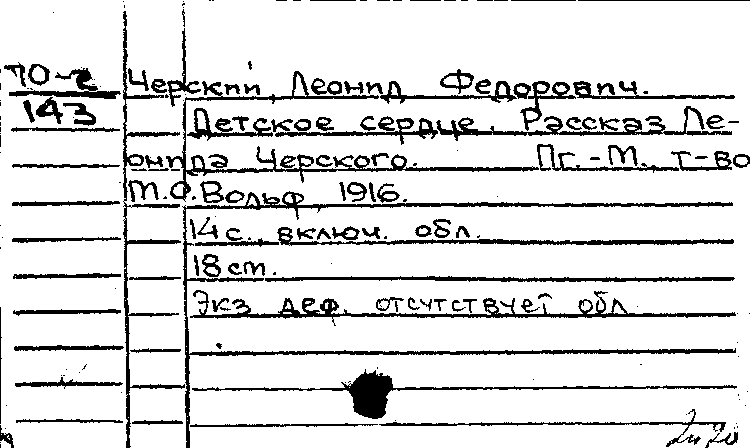 10-2
143
Черский, Леонид Федорович.
Детское сердце. Рассказ Ле-
онида Черского. Пг.-М., т-во
М.О.Вольф, 1916.
14 с., включ. обл.
18 см.
Экз деф. отсутствует обл